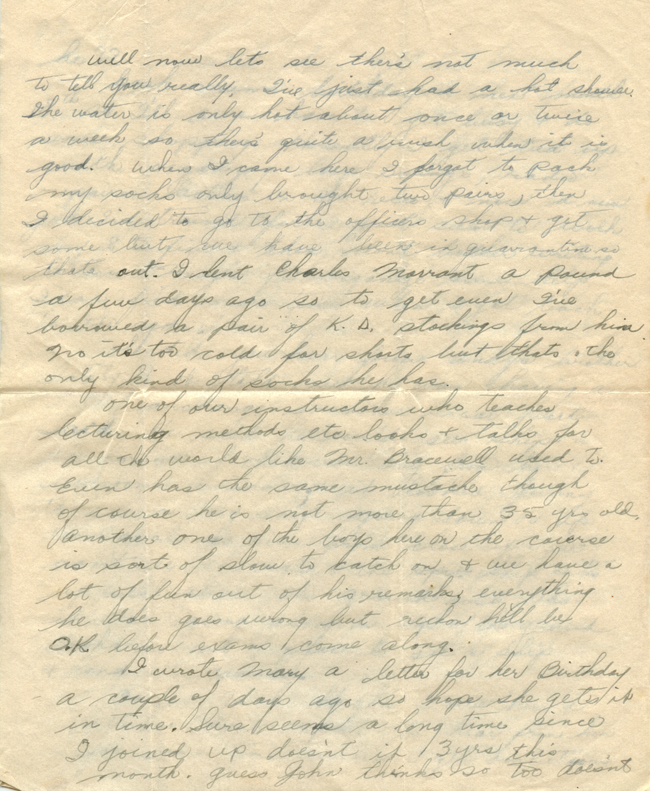 Well now lets see there's not much
to tell you really, I've just had a hot shower.
The water is only hot about once or twice
a week so there's quite a rush when it is
good. When I came here I forgot to pack
my socks only brought two pairs, then
I decided to go to the officers shop + get
some but we have been in quarantine so
thats out. I lent Charles Morrant a pound
a few days ago so to get even I've
borrowed a pair of K.D. stockings from him
No it's too cold for shorts but thats the
only kind of socks he has.
One of our instructors who teaches
lecturing methods etc looks + talks for
all the world like Mr. Bracewell used to.
Even has the same mustache though
of course he is not more than 35 yrs old.
Another one of the boys here on the course
is sort of slow to catch on + we have a
lot of fun out of his remarks, everything
he does goes wrong but reckon he'll be
O.K. before exams come along.
I wrote Mary a letter for her Birthday
a couple of days ago so hope she gets it
in time. Sure seems a long time since
I joined up doesn't it 3 yrs this
month. guess John thinks so too doesn't